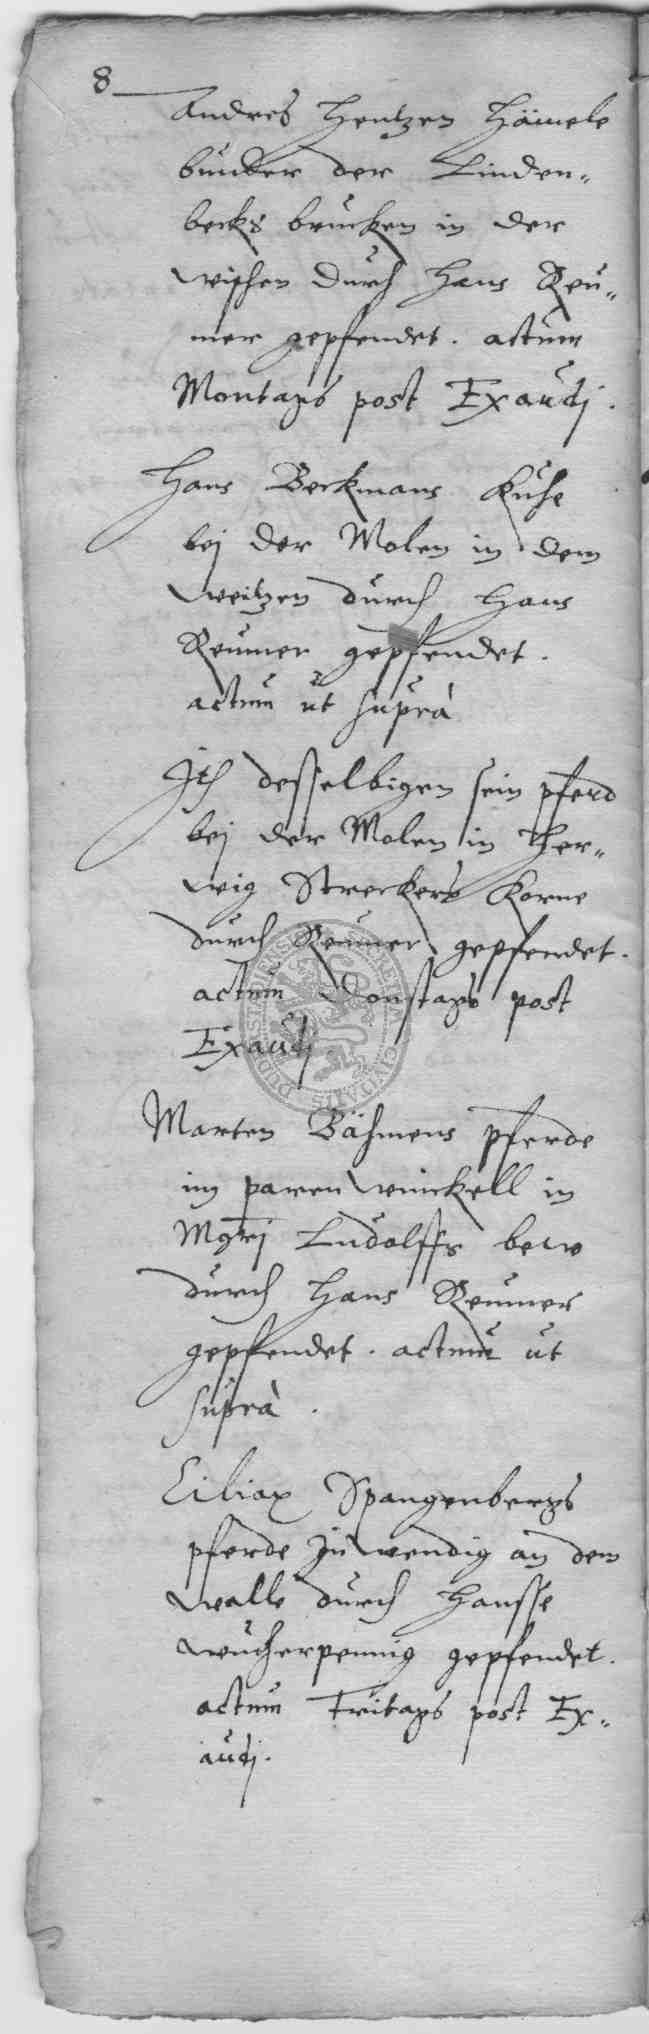 8
Andres Hentzen Hämele
bunder der Linden„
becks brucken in der
wischen durch Hans Reu„
mer gepfendet. actum
Montags post Exaudj.
Hans Beckmans Kuhe
bej der Molen in dem
weitzen durch Hans
Reumer gepfendet.
actum ut suprà
Jt desselbigen sein pferd
bej der Molen in Her„
wig Streckers Korne
durch Reumer gepfendet.
actum Donstags post
Exaudj
Marten Bähmens pferde
im paren winckell in
Mgrj Ludolffs
durch Hans Reumer
gepfendet. actum ut
suprà.
Ciliax Spangenbergs
pferde Inwendig an dem
walle durch Hansse
wucherpennig gepfendet.
actum Fritags post Ex„
audj.